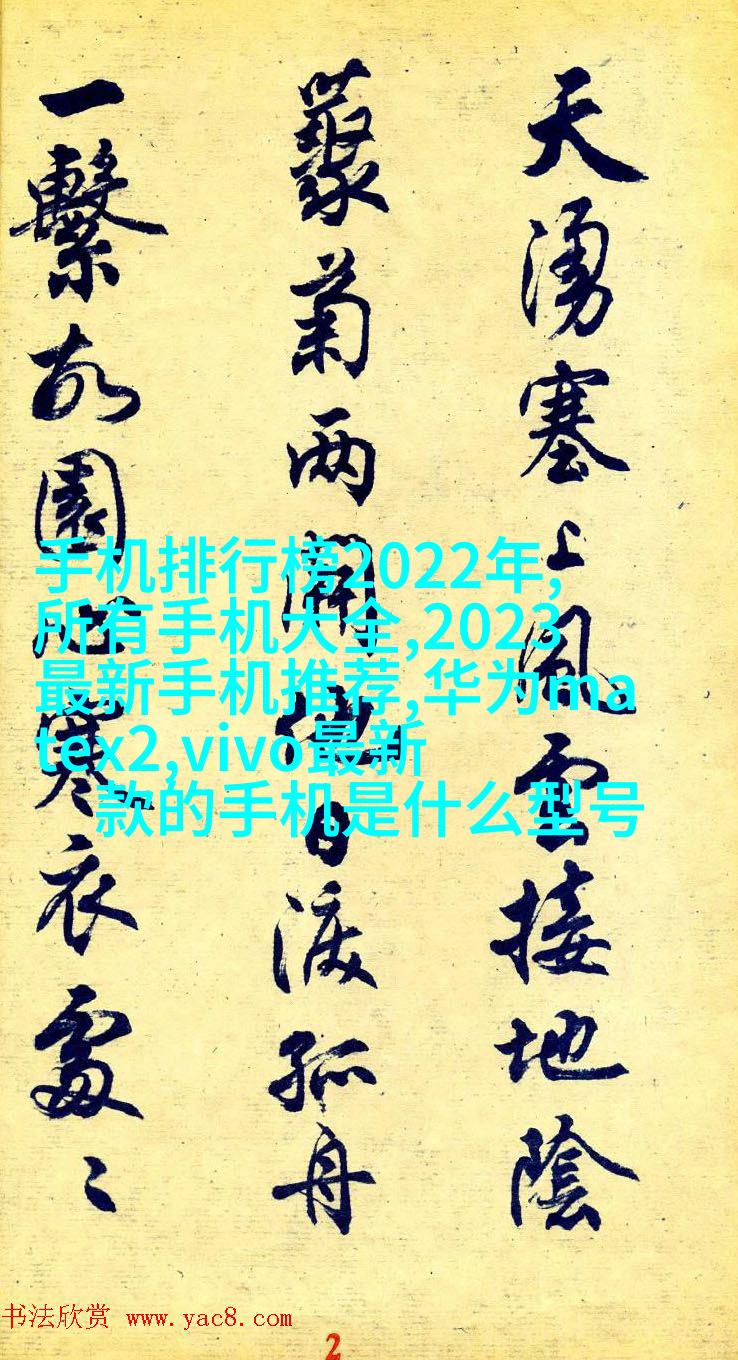 天湧塞上風雲接地陰
叢菊两開他日淚孤舟
一繫故園心寒衣處〻
手机排行榜2022年,
所有手机大全,2023
最新手机推荐,华为ma
tex2,vivo最新
款的手机是什么型号
书法欣赏 www.yac8.com
2